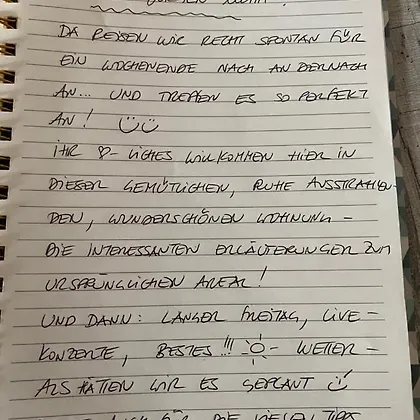 DA REISEN WIR RECHT SPONTAN FÜR
EIN WOCHENENDE NACH ANDERNACH
AN... UND TREFFEN ES SO PERFEKT
AN! ☺☺
IHR ♡-LICHES WILLKOMMEN HIER IN
DIESER GEMÜTLICHEN, RUHE AUSSTRAHLEN-
DEN, WUNDERSCHÖNEN WOHNUNG -
DIE INTERESSANTEN ERLÄUTERUNGEN ZUM
URSPRÜNGLICHEN AREAL!
UND DANN: LANGER FREITAG, LIVE-
KONZERTE, BESTES!!! ☼- WETTER -
ALS HÄTTEN WIR ES GEPLANT ☺
AUCH FÜR DIE VIELEN TIPPS